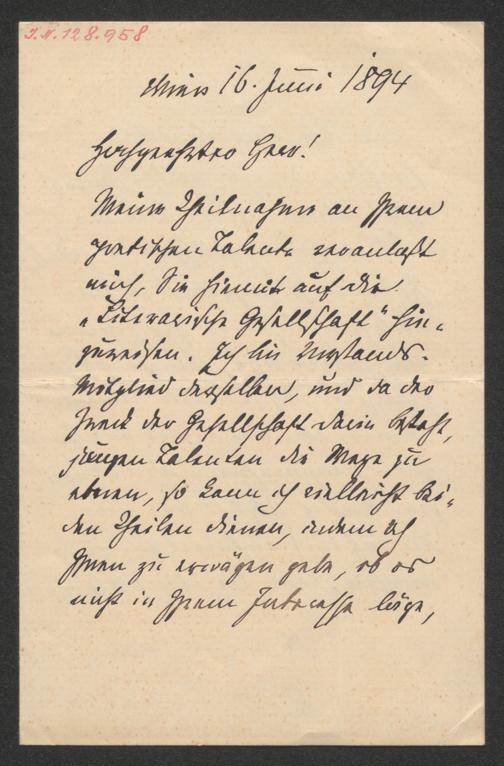 I.N. 128.958
Wien 16. Juni 1894
Hochgeehrter Herr!
Meine Theilnahme an Ihrem
poetischen Talente veranlaßt
mich, Sie hiemit auf die
„Literarische Gesellschaft" hin-
zuweisen. Ich bin Vorstands-
Mitglied derselben, und da der
Zweck der Gesellschaft darin besteht,
jungen Talenten die Wege zu
ebnen, so kann ich vielleicht bei-
den Theilen dienen, indem ich
Ihnen zu erwägen gebe, ob es
nicht in Ihrem Interesse läge,